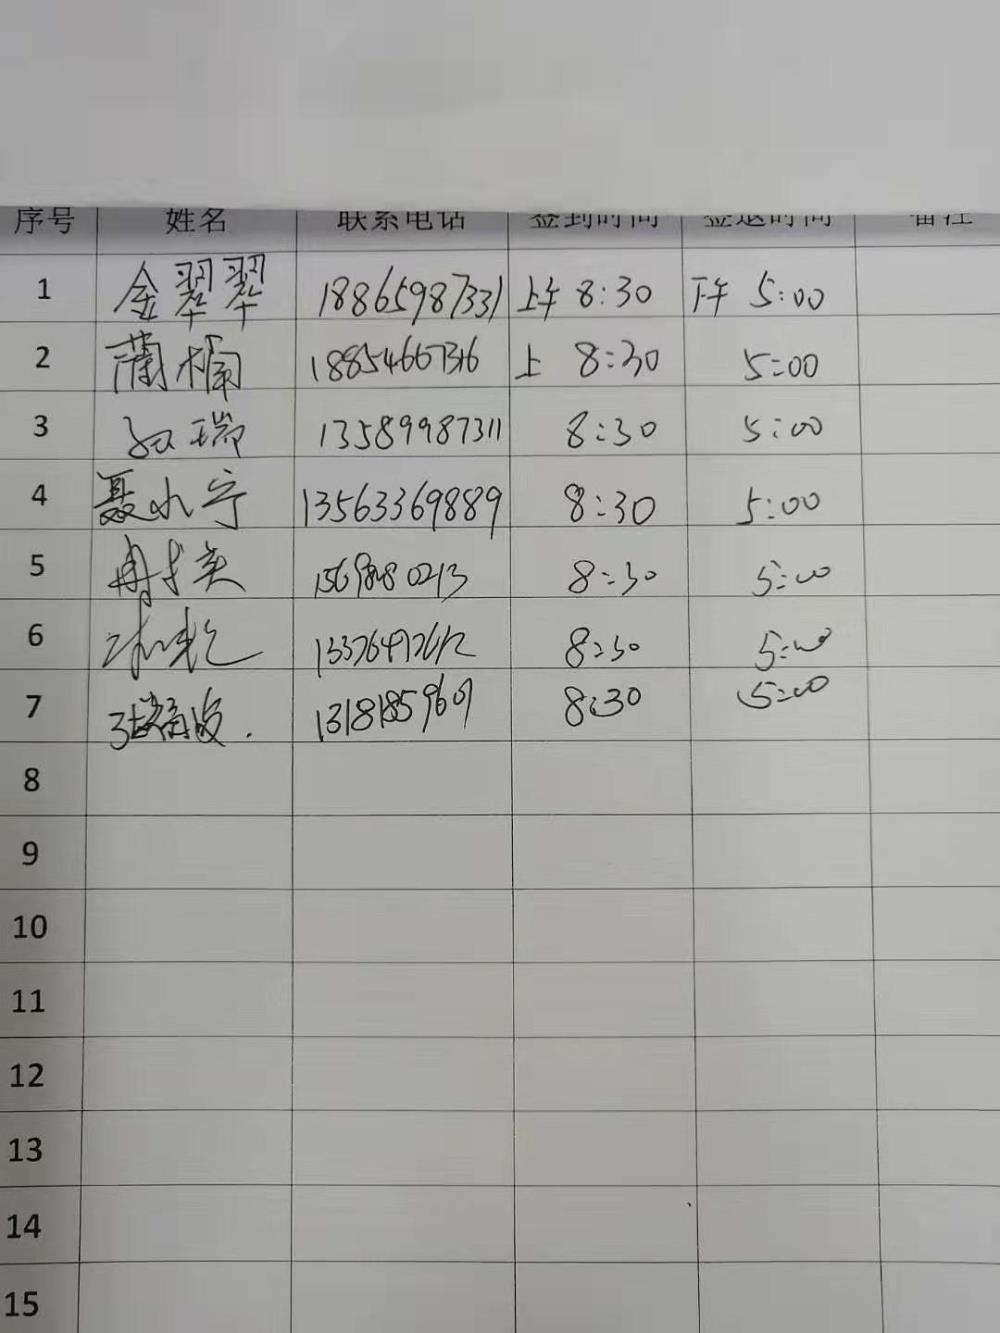 序号 姓名 联系电话 签到时间 签退时间 备注
1 金翠翠 18865987331 上午 8:30 下午 5:00
2 蔺楠 18854667316 上 8:30 5:00
3 瑞 13589987311 8:30 5:00
4 聂小宁 13563369889 8:30 5:00
5 8:30 5:00
6 8:30 5:00
7 13181859609 8:30 5:00
8
9
10
11
12
13
14
15